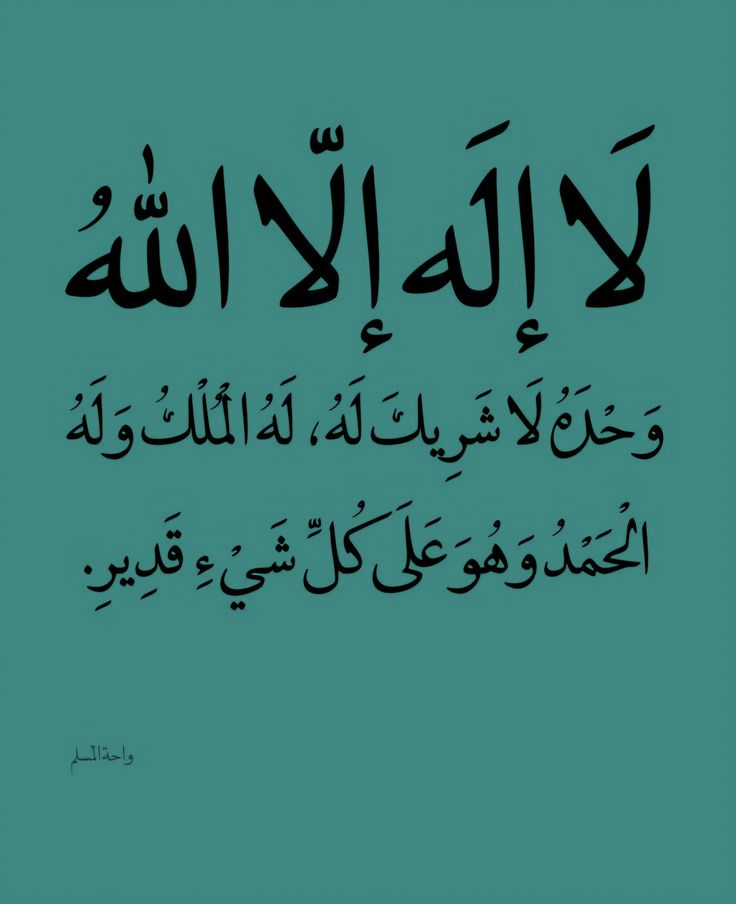 لَا إِلَه إِلّا اللهُ
وَحْدَهُ لَا شَرِيكَ لَهُ، لَهُ الْمُلْكُ وَلَهُ
الْحَمْدُ وَهُوَ عَلَى كُلِّ شَيْءٍ قَدِيرِ.
واحة المسلم